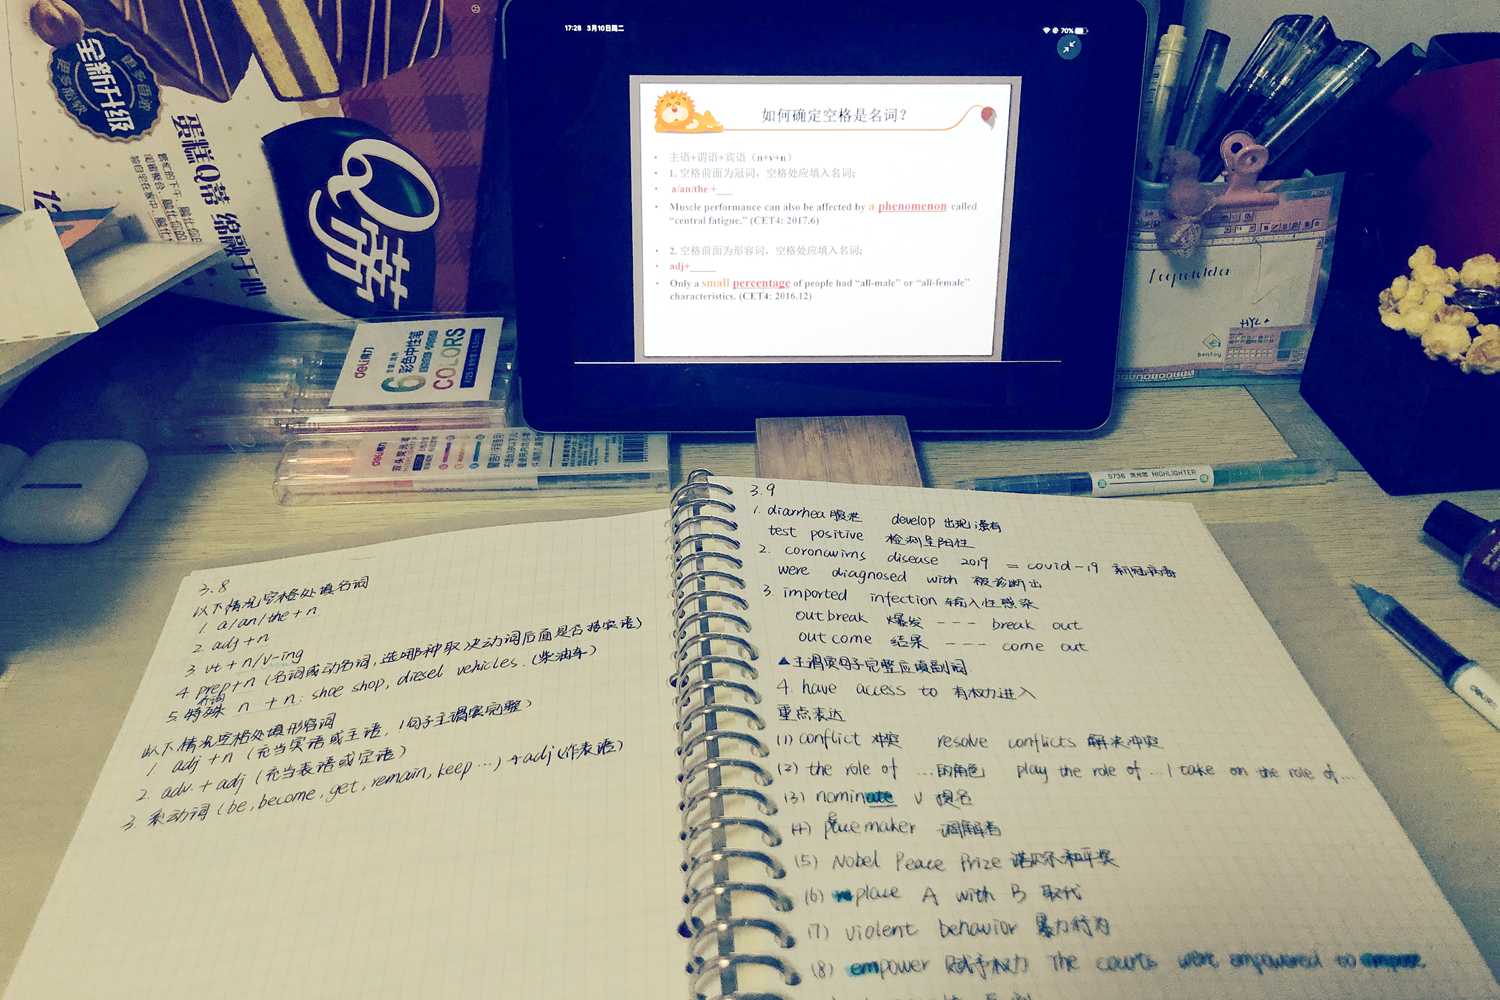 全新升级
蛋糕Q蒂 绵融于心
Q蒂
deli得力
6
彩色中性笔
COLORS
deli得力
双头荧光笔
17:28 3月10日周二
70%
如何确定空格是名词？
• 主语+谓语+宾语（n+v+n）
• 1. 空格前面为冠词，空格处应填入名词;
• a/an/the +___
• Muscle performance can also be affected by a phenomenon called
“central fatigue.” (CET4: 2017.6)
• 2. 空格前面为形容词，空格处应填入名词;
• adj+_____
• Only a small percentage of people had “all-male” or “all-female”
characteristics. (CET4: 2016.12)
bentoy
S736 荧光笔 HIGHLIGHTER
3.8
以下情况空格处填名词
1. a/an/the + n
2. adj + n
3. vt + n/v-ing
4. prep+n (名词或动名词,选哪种取决动词后面是否接宾语)
介词
5. 特殊 n + n: shoe shop, diesel vehicles. (柴油车)
以下情况空格处填形容词
1. adj + n (充当宾语或主语, 1句子主谓宾完整)
2. adv. + adj (充当表语或定语)
3. 系动词 (be, become, get, remain, keep ...) + adj (作表语)
3.9
1. diarrhea 腹泄 develop 出现;患有
test positive 检测呈阳性
2. coronavirus disease 2019 = covid-19 新冠病毒
were diagnosed with 被诊断出
3. imported infection 输入性感染
outbreak 爆发 --- break out
outcome 结果 --- come out
▲主谓宾句子完整应填副词
4. have access to 有权力进入
重点表达
(1) conflict 冲突 resolve conflicts 解决冲突
(2) the role of ... 的角色 play the role of ... / take on the role of ...
(3) nominate v 提名
(4) peacemaker 调解者
(5) Nobel Peace Prize 诺贝尔和平奖
(6) replace A with B 取代
(7) violent behavior 暴力行为
(8) empower 赋予权力 The courts were empowered to impose.